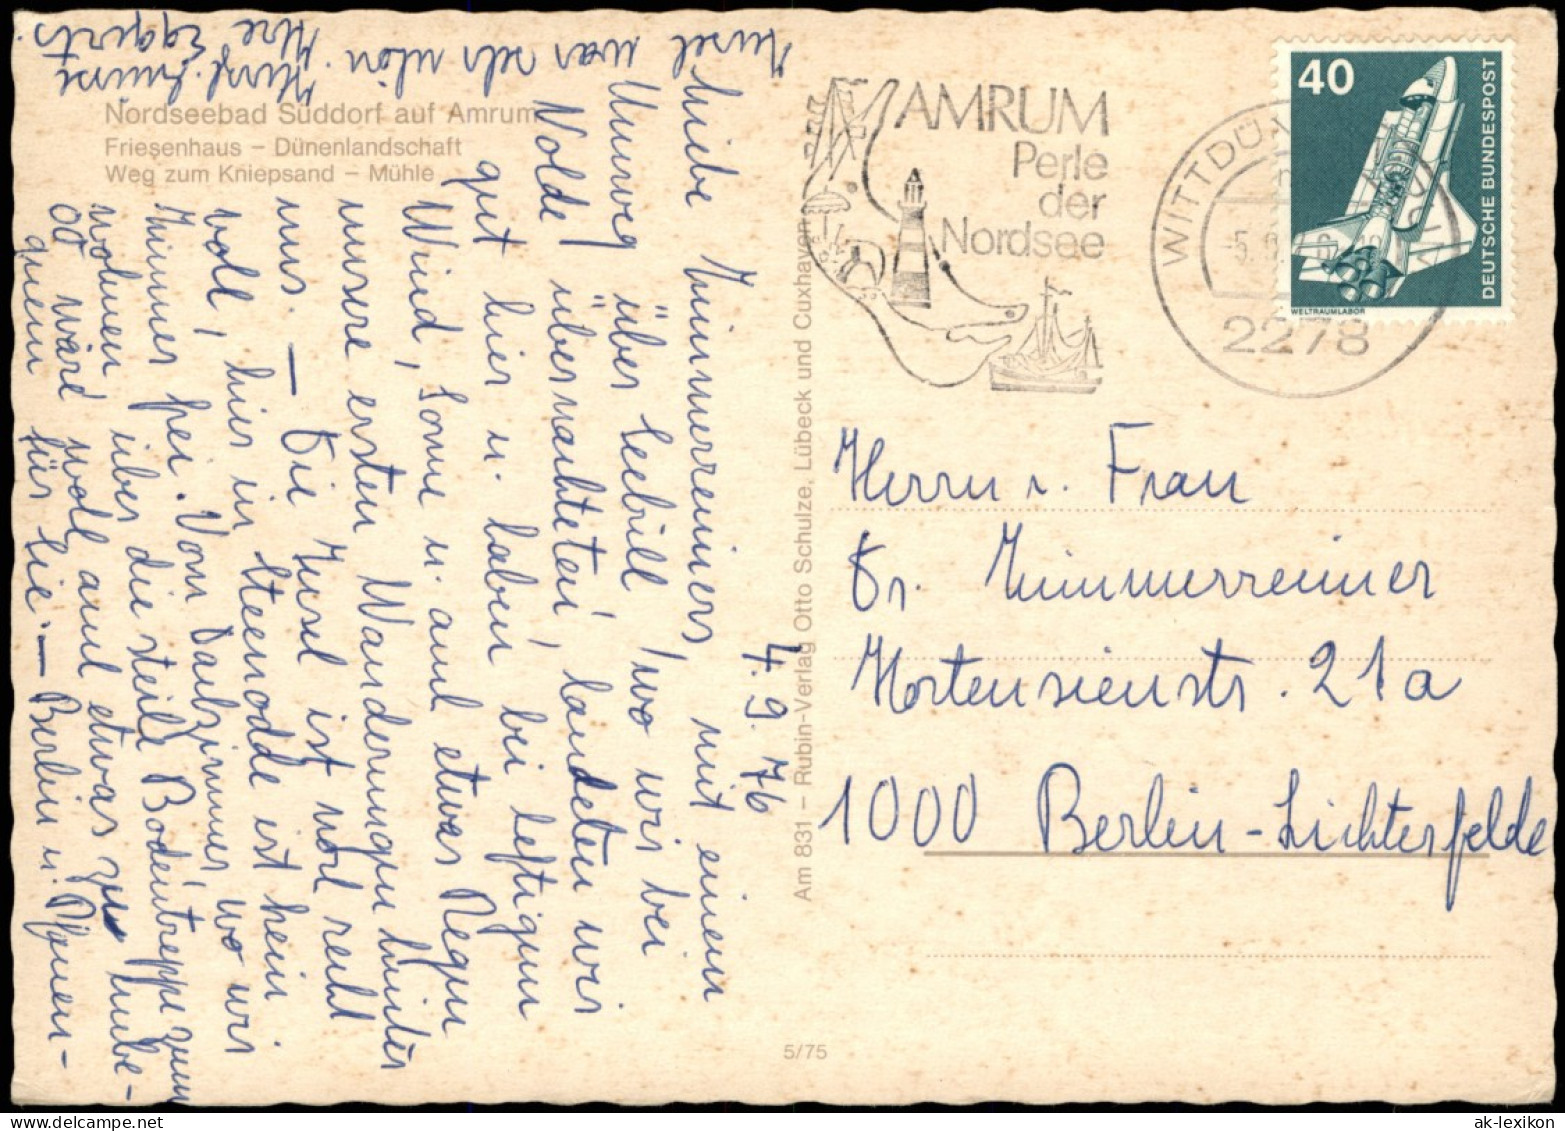 Nordseebad Süddorf auf Amrum
Friesenhaus – Dünenlandschaft
Weg zum Kniepsand – Mühle
4.9.76
Liebe Zimmerreimers, mit einem
Umweg über Seebüll (wo wir bei
Nolde) übernachteten, landeten wir
gut hier u. haben bei heftigem
Wind, Sonne u. auch etwas Regen
unsere ersten Wanderungen hinter
uns. — Die Insel ist noch recht
voll, hier in Steenodde ist kein
Zimmer frei. Vom Dachzimmer wo wir
wohnen über die steile Bodentreppe zum
00 wäre wohl auch etwas zu unbe-
quem für Sie. — Berlin u. Plauen-
Insel war sehr schön.
Herzl. Grüsse
Ihre Eggerts.
Am 831 – Rubin-Verlag Otto Schulze, Lübeck und Cuxhaven
5/75
AMRUM
Perle
der
Nordsee
WITTDÜN
2278
40
DEUTSCHE BUNDESPOST
WELTRAUMLABOR
Herrn u. Frau
Dr. Zimmerreimer
Hortensienstr. 21a
1000 Berlin-Lichterfelde
ak-lexikon.com